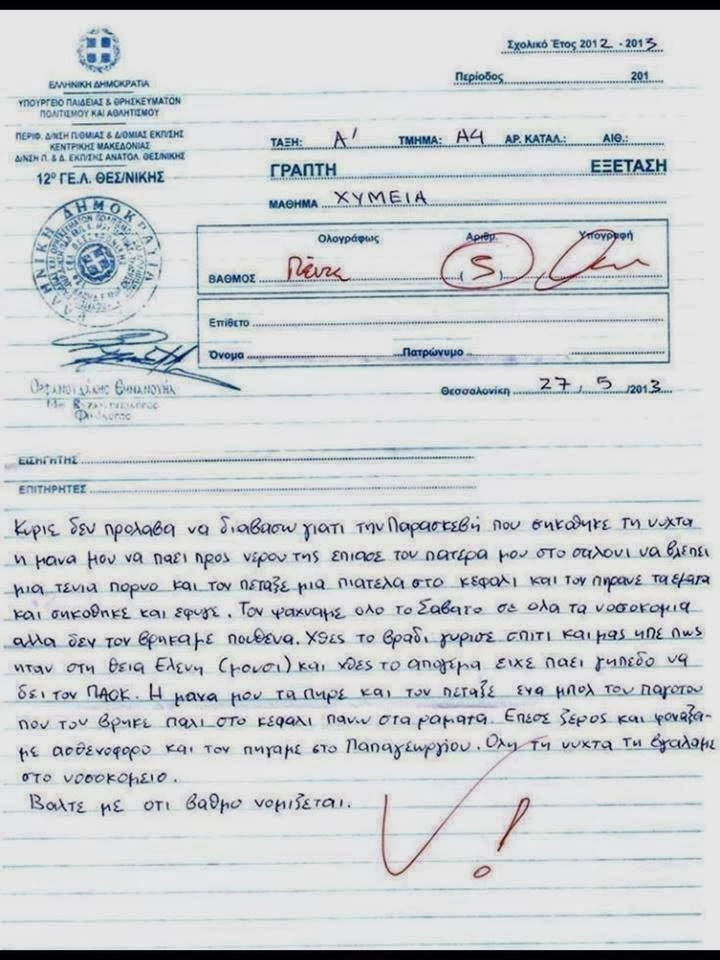 Σχολικό Έτος 2012 - 2013
Περίοδος 201
ΕΛΛΗΝΙΚΗ ΔΗΜΟΚΡΑΤΙΑ
ΥΠΟΥΡΓΕΙΟ ΠΑΙΔΕΙΑΣ & ΘΡΗΣΚΕΥΜΑΤΩΝ
ΠΟΛΙΤΙΣΜΟΥ ΚΑΙ ΑΘΛΗΤΙΣΜΟΥ
ΠΕΡΙΦ. Δ/ΝΣΗ Π/ΘΜΙΑΣ & Δ/ΘΜΙΑΣ ΕΚΠ/ΣΗΣ
ΚΕΝΤΡΙΚΗΣ ΜΑΚΕΔΟΝΙΑΣ
Δ/ΝΣΗ Π. & Δ. ΕΚΠ/ΣΗΣ ΑΝΑΤΟΛ. ΘΕΣ/ΝΙΚΗΣ
12ο ΓΕ.Λ. ΘΕΣ/ΝΙΚΗΣ
ΤΑΞΗ: Α' ΤΜΗΜΑ: Α4 ΑΡ. ΚΑΤΑΛ.: ΑΙΘ.:
ΓΡΑΠΤΗ ΕΞΕΤΑΣΗ
ΜΑΘΗΜΑ ΧΥΜΕΙΑ
Ολογράφως Αριθμ. Υπογραφή
ΒΑΘΜΟΣ Πέντε (5)
Επίθετο
Όνομα Πατρώνυμο
Θεσσαλονίκη 27/5/2013
ΕΛΛΗΝΙΚΗ ΔΗΜΟΚΡΑΤΙΑ
ΕΙΣΗΓΗΤΗΣ
ΕΠΙΤΗΡΗΤΕΣ
Κυριε δεν προλαβα να διαβασω γιατι την Παρασκεβή που σηκοθηκε τη νυχτα
η μανα μου να παει προς νερου της επιασε τον πατερα μου στο σαλονι να βλεπει
μια τενια πορνο και τον πεταξε μια πιατελα στο κεφαλι και τον πηρανε τα εματα
και σηκοθηκε και εφυγε. Τον ψαχναμε ολο το Σαβατο σε ολα τα νοσοκομια
αλλα δεν τον βρηκαμε πουθενα. Χθες το βραδι γυρισε σπιτι και μας ηπε πως
ηταν στη θεια Ελενη (μουσι) και χθες το απογεμα ειχε παει γηπεδο να
δει τον ΠΑΟΚ. Η μανα μου τα πηρε και τον πεταξε ενα μπολ του παγοτου
που τον βρηκε παλι στο κεφαλι πανω στα ραματα. Επεσε ξερος και φοναξα-
με ασθενοφορο και τον πηγαμε στο Παπαγεωργιου. Ολη τη νυχτα τη βγαλαμε
στο νοσοκομειο.
Βαλτε με οτι βαθμο νομιζεται.
!